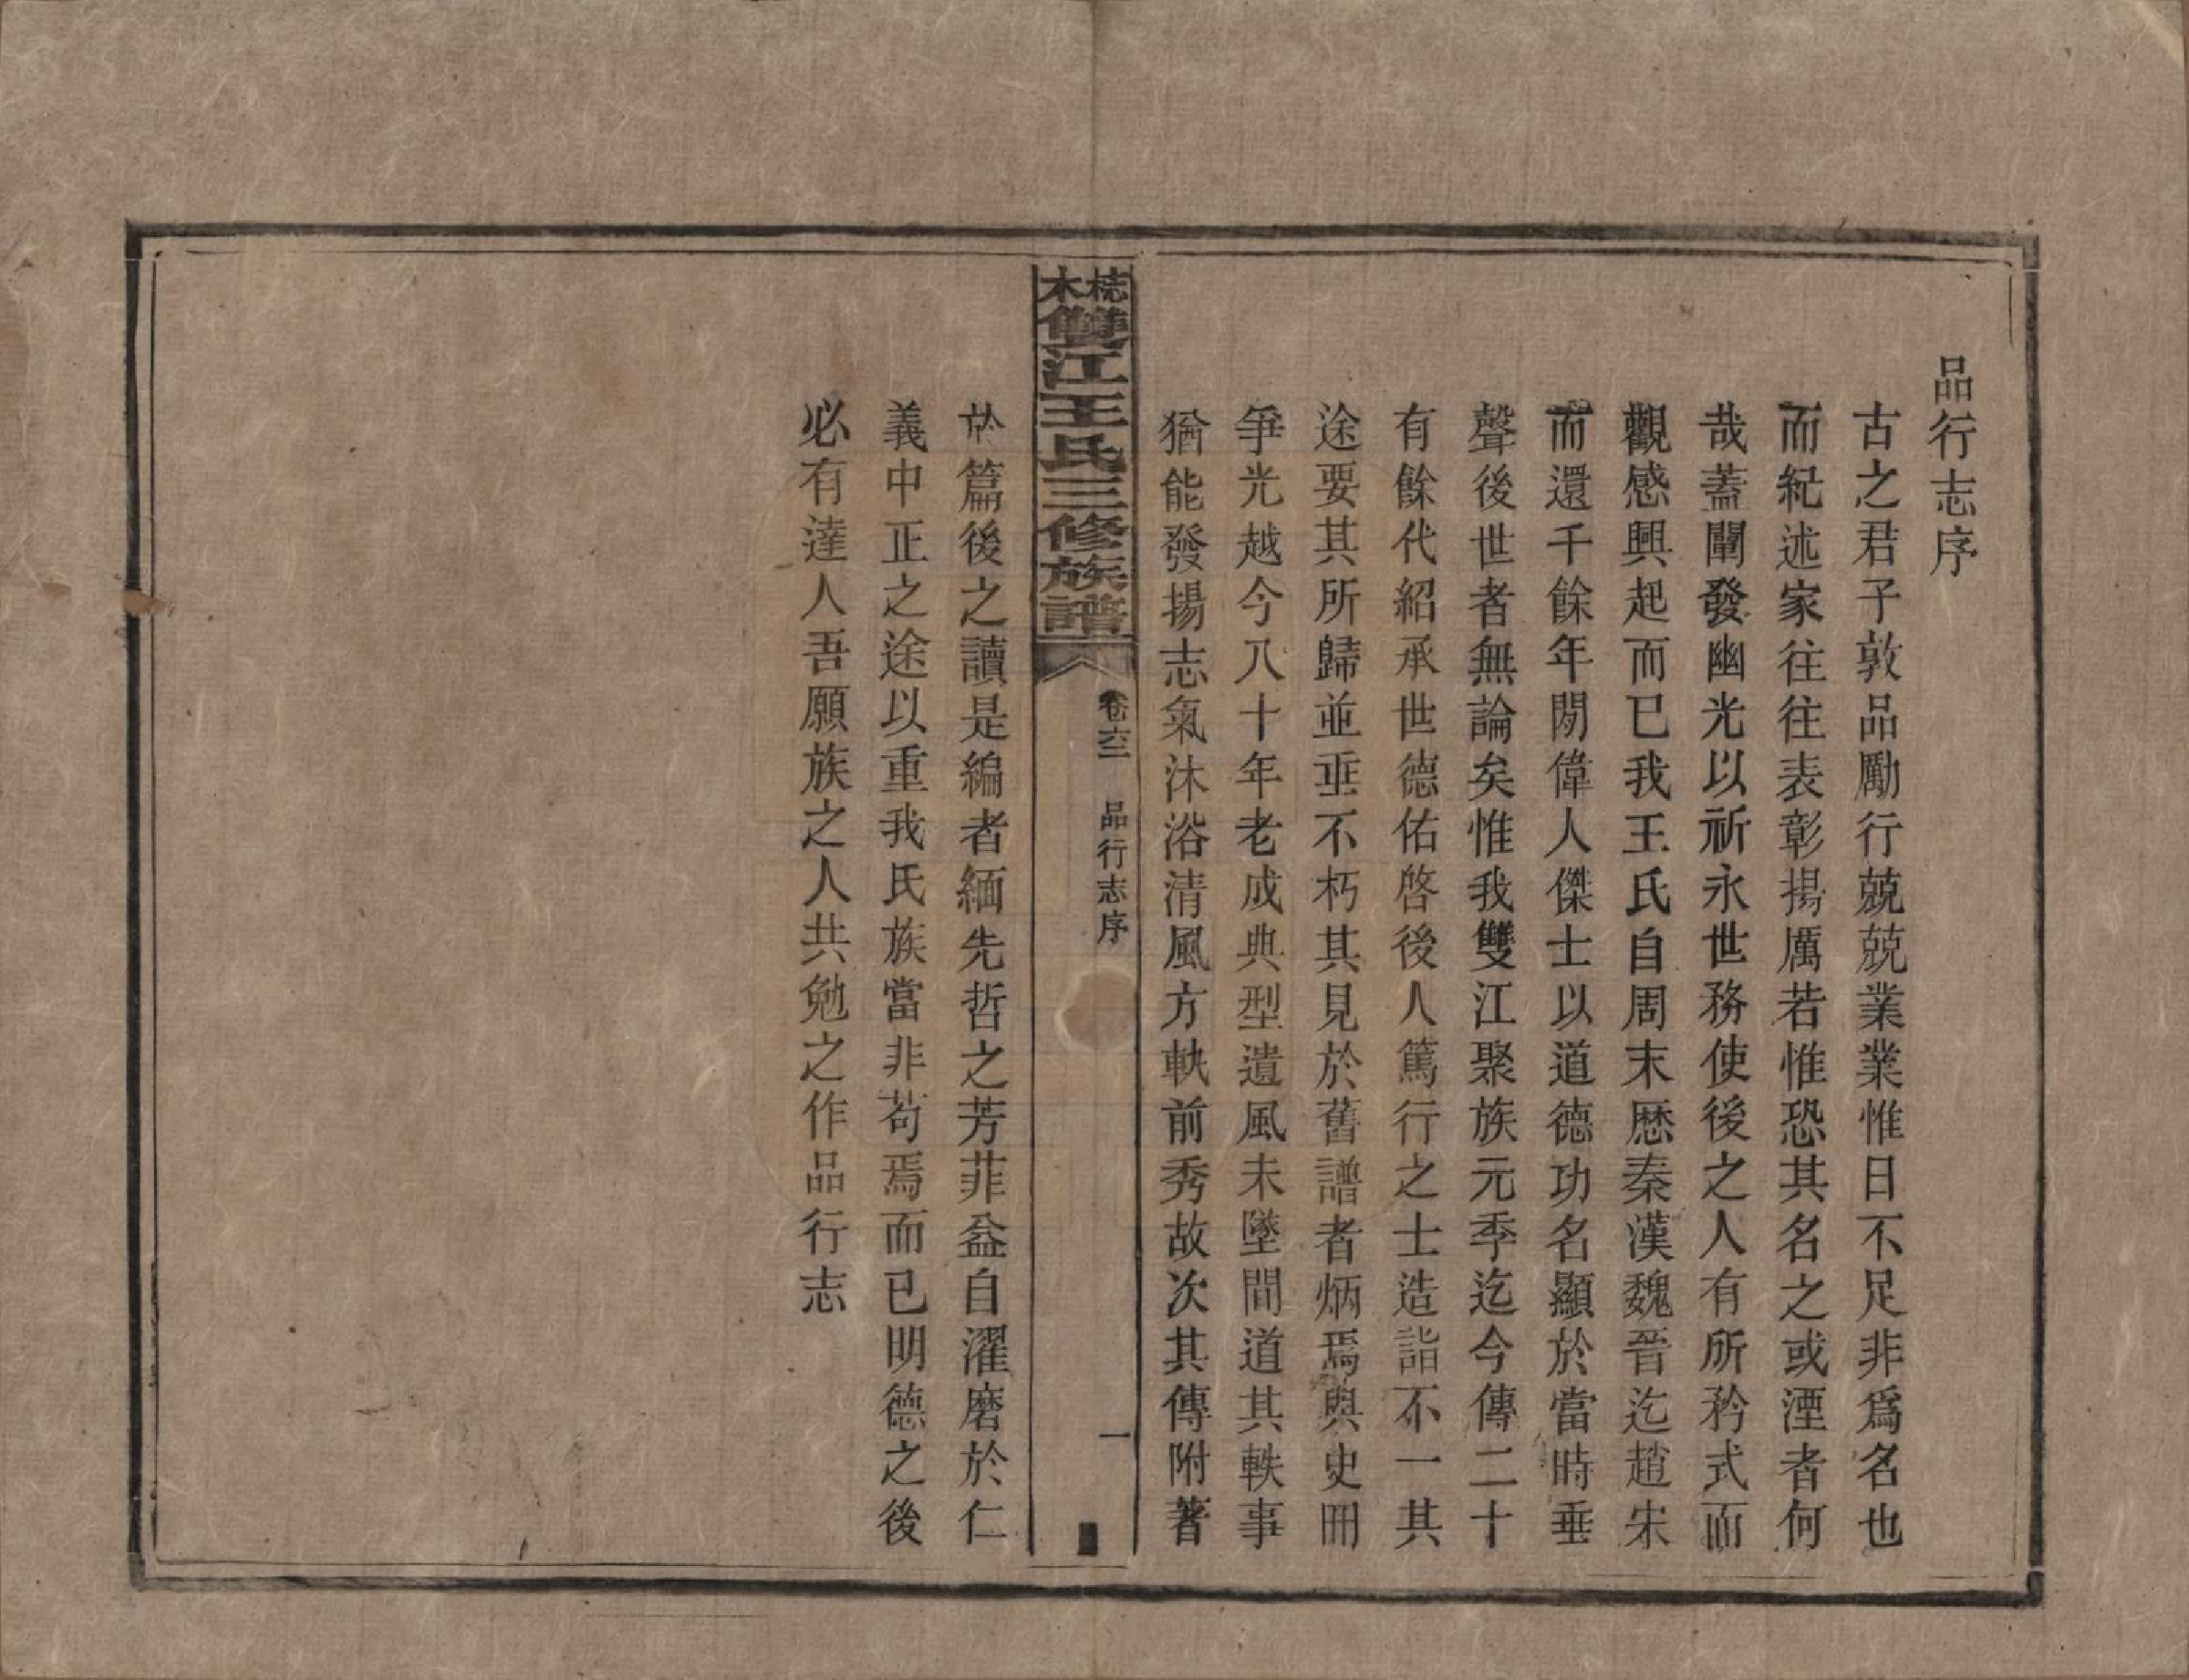 品行志序
古之君子敦品勵行兢兢業業惟日不足非爲名也
而紀述家往往表彰揚厲若惟恐其名之或湮者何
哉蓋闡發幽光以祈永世務使後之人有所矜式而
觀感興起而已我王氏自周末歷秦漢魏晉迄趙宋
而還千餘年閒偉人傑士以道德功名顯於當時垂
聲後世者無論矣惟我雙江聚族元季迄今傳二十
有餘代紹承世德佑啓後人篤行之士造詣不一其
途要其所歸並垂不朽其見於舊譜者炳焉與史冊
爭光越今八十年老成典型遺風未墜間道其軼事
猶能發揚志氣沐浴清風方軌前秀故次其傳附著
梽木雙江王氏三修族譜
卷六二 品行志序 一
於篇後之讀是編者緬先哲之芳菲益自濯磨於仁
義中正之途以重我氏族當非苟焉而已明德之後
必有達人吾願族之人共勉之作品行志